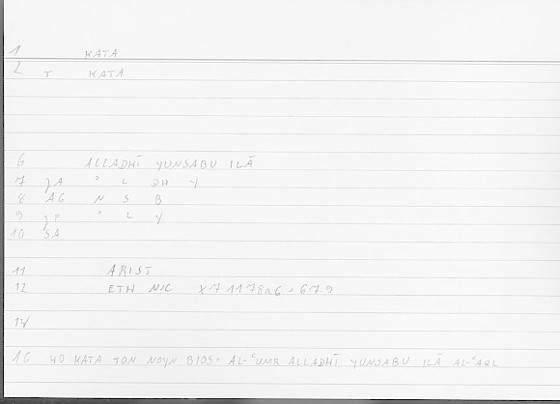 1 KATA
2 T KATA
6 ALLADHĪ YUNSABU ILĀ
7 JA ʾ L DH Y
8 AG N S B
9 JP ʾ L Y
10 SA
11 ARIST
12 ETH NIC X7 1178a6
14
16 HO KATA TON NOYN BIOS AL-ʿUMR ALLADHĪ YUNSABU ILĀ AL-ʿAQL